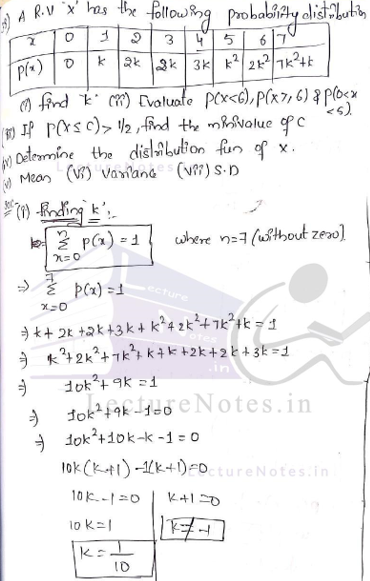 3) A R.V 'x' has the following probability distribution
x 0 1 2 3 4 5 6 7
P(x) 0 k 2k 2k 3k k² 2k² 7k²+k
(i) find 'k' (ii) Evaluate P(x<6), P(x≥6) & P(0<x<5).
(iii) If P(x≤c)>1/2, find the minivalue of c
(iv) Determine the distribution fun of x.
(v) Mean (vi) Variance (vii) S.D
(i) finding 'k':-
n Σ x=0 P(x) = 1 where n=7 (without zero)
⇒ 7 Σ x=0 P(x) = 1
⇒ k+2k+2k+3k+k²+2k²+7k²+k=1
⇒ k²+2k²+7k²+k+k+2k+2k+3k=1
⇒ 10k²+9k=1
⇒ 10k²+9k-1=0
⇒ 10k²+10k-k-1=0
10k(k+1)-1(k+1)=0
10k-1=0 k+1=0
10k=1 k≠-1
k=1/10
LectureNotes.in
LectureNotes.in